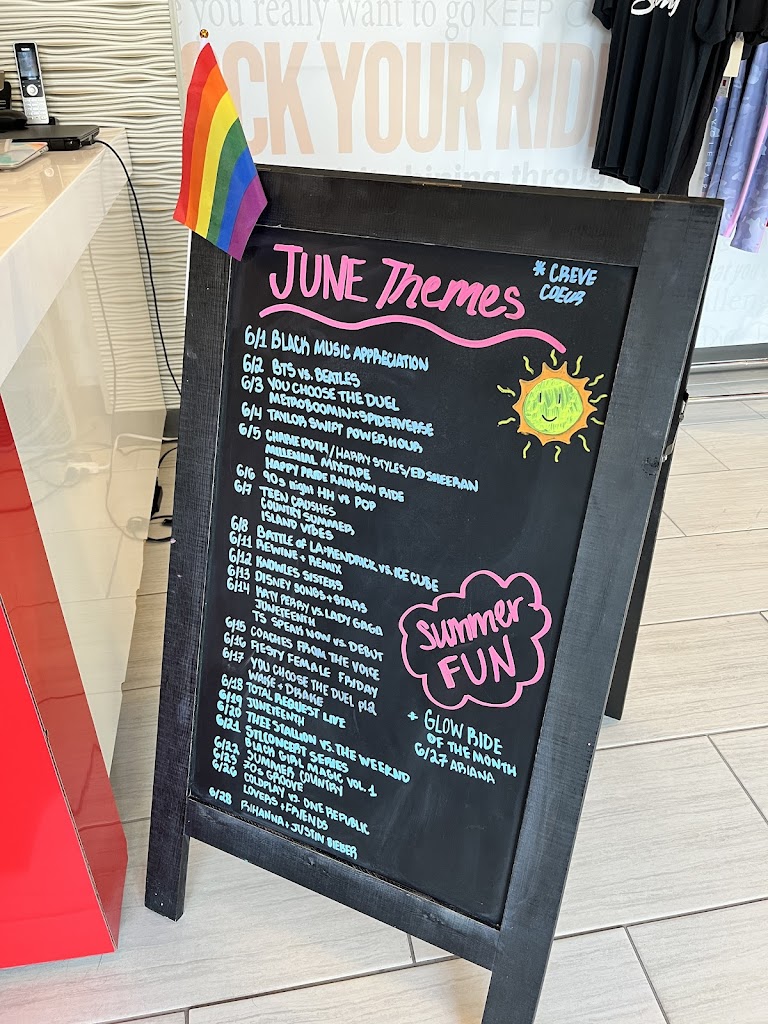 you really want to go KEEP
CK YOUR RIDE
JUNE Themes
* CREVE
COEUR
6/1 BLACK MUSIC APPRECIATION
6/2 BTS vs. BEATLES
6/3 YOU CHOOSE THE DUEL
METROBOOMIN x SPIDERVERSE
6/4 TAYLOR SWIFT POWER HOUR
6/5 CHARLIE PUTH/HARRY STYLES/ED SHEERAN
MILLENIAL MIXTAPE
HAPPY PRIDE RAINBOW RIDE
6/6 90s night HH vs POP
6/7 TEEN CRUSHES
COUNTRY SUMMER
ISLAND VIBES
6/8 BATTLE of LA: KENDRICK vs. ICE CUBE
6/11 REWINE + REMIX
6/12 KNOWLES SISTERS
6/13 DISNEY SONGS + STARS
6/14 KATY PERRY vs. LADY GAGA
JUNETEENTH
TS SPEAK NOW vs. DEBUT
6/15 COACHES FROM THE VOICE
6/16 FIESTY FEMALE FRIDAY
6/17 YOU CHOOSE THE DUEL pt.2
WAKE + DRAKE
6/18 TOTAL REQUEST LIVE
6/19 JUNETEENTH
6/20 THEE STALLION vs. THE WEEKND
6/21 STL CONCERT SERIES
BLACK GIRL MAGIC VOL. 1
6/22 SUMMER COUNTRY
6/25 70s GROOVE
6/26 COLDPLAY vs. ONE REPUBLIC
LOVERS + FRIENDS
6/28 RIHANNA + JUSTIN BIEBER
Summer
FUN
+ GLOW RIDE
OF THE MONTH
6/27 ARIANA